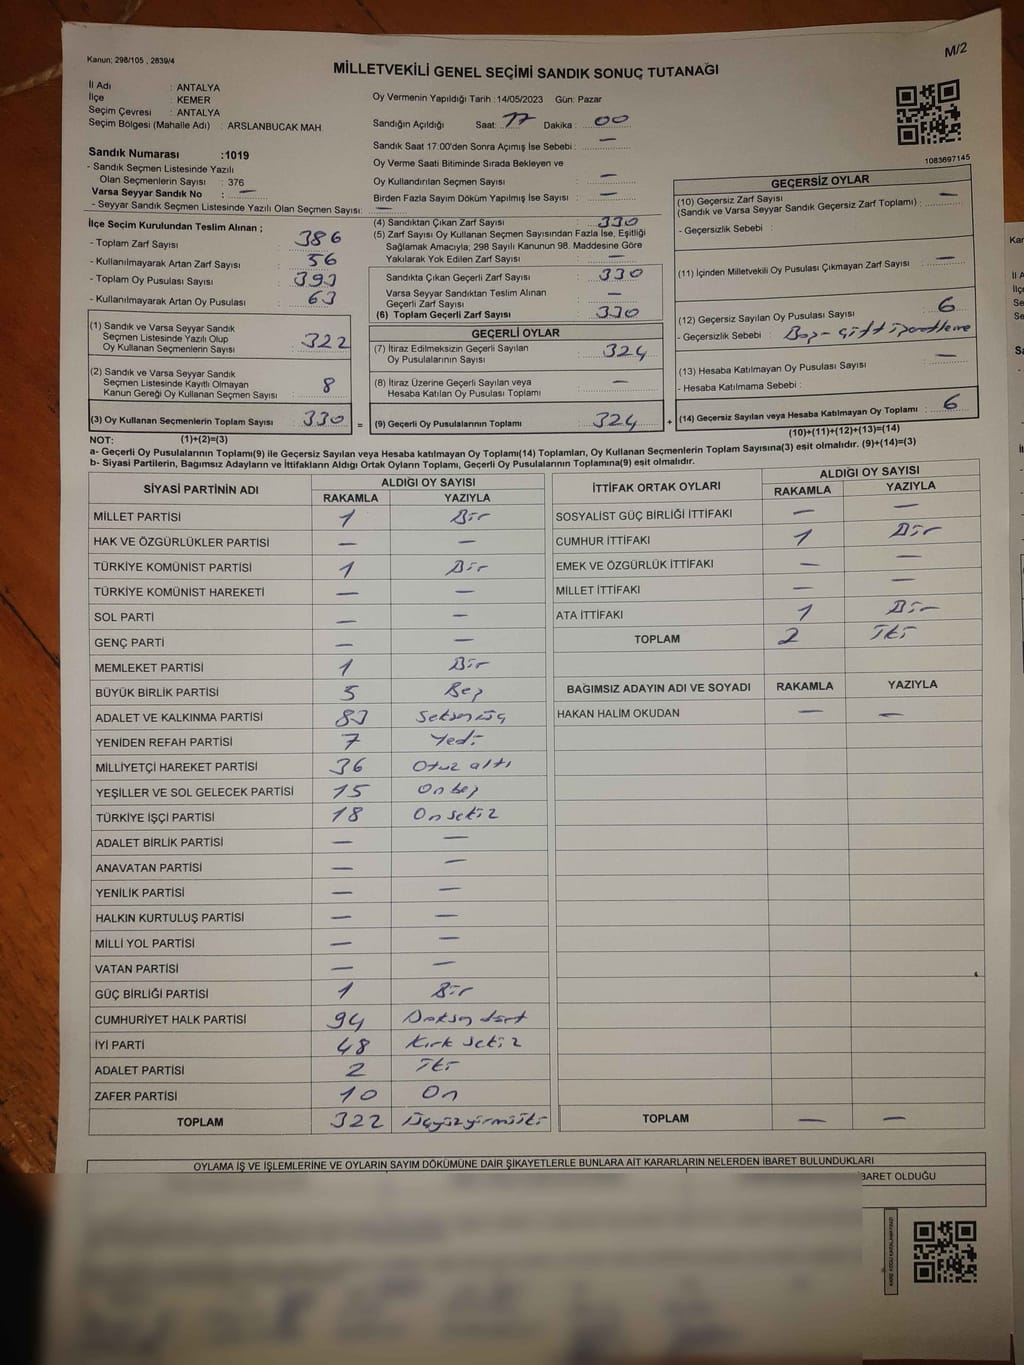 Kanun; 298/105 , 2839/4
M/2
MİLLETVEKİLİ GENEL SEÇİMİ SANDIK SONUÇ TUTANAĞI
İl Adı : ANTALYA
İlçe : KEMER
Seçim Çevresi : ANTALYA
Seçim Bölgesi (Mahalle Adı) : ARSLANBUCAK MAH.
Oy Vermenin Yapıldığı Tarih :14/05/2023 Gün: Pazar
Sandığın Açıldığı Saat: 17 Dakika : 00
Sandık Saat 17:00'den Sonra Açımış İse Sebebi : —
Oy Verme Saati Bitiminde Sırada Bekleyen ve
Oy Kullandırılan Seçmen Sayısı : —
Birden Fazla Sayım Döküm Yapılmış İse Sayısı : —
1083697145
Sandık Numarası :1019
- Sandık Seçmen Listesinde Yazılı
Olan Seçmenlerin Sayısı : 376
Varsa Seyyar Sandık No : —
- Seyyar Sandık Seçmen Listesinde Yazılı Olan Seçmen Sayısı: —
İlçe Seçim Kurulundan Teslim Alınan ;
- Toplam Zarf Sayısı : 386
- Kullanılmayarak Artan Zarf Sayısı : 56
- Toplam Oy Pusulası Sayısı : 393
- Kullanılmayarak Artan Oy Pusulası : 63
(1) Sandık ve Varsa Seyyar Sandık
Seçmen Listesinde Yazılı Olup
Oy Kullanan Seçmenlerin Sayısı : 322
(2) Sandık ve Varsa Seyyar Sandık
Seçmen Listesinde Kayıtlı Olmayan
Kanun Gereği Oy Kullanan Seçmen Sayısı : 8
(3) Oy Kullanan Seçmenlerin Toplam Sayısı : 330 =
(4) Sandıktan Çıkan Zarf Sayısı : 330
(5) Zarf Sayısı Oy Kullanan Seçmen Sayısından Fazla İse, Eşitliği
Sağlamak Amacıyla; 298 Sayılı Kanunun 98. Maddesine Göre
Yakılarak Yok Edilen Zarf Sayısı : —
Sandıkta Çıkan Geçerli Zarf Sayısı : 330
Varsa Seyyar Sandıktan Teslim Alınan
Geçerli Zarf Sayısı : —
(6) Toplam Geçerli Zarf Sayısı : 330
GEÇERLİ OYLAR
(7) İtiraz Edilmeksizin Geçerli Sayılan
Oy Pusulalarının Sayısı : 324
(8) İtiraz Üzerine Geçerli Sayılan veya
Hesaba Katılan Oy Pusulası Toplamı : —
(9) Geçerli Oy Pusulalarının Toplamı : 324 +
GEÇERSİZ OYLAR
(10) Geçersiz Zarf Sayısı
(Sandık ve Varsa Seyyar Sandık Geçersiz Zarf Toplamı) : —
- Geçersizlik Sebebi :
(11) İçinden Milletvekili Oy Pusulası Çıkmayan Zarf Sayısı : —
(12) Geçersiz Sayılan Oy Pusulası Sayısı : 6
- Geçersizlik Sebebi : Boş - çift işaretleme
(13) Hesaba Katılmayan Oy Pusulası Sayısı : —
- Hesaba Katılmama Sebebi :
(14) Geçersiz Sayılan veya Hesaba Katılmayan Oy Toplamı : 6
NOT: (1)+(2)=(3)
(10)+(11)+(12)+(13)=(14)
a- Geçerli Oy Pusulalarının Toplamı(9) ile Geçersiz Sayılan veya Hesaba Katılmayan Oy Toplamı(14) Toplamları, Oy Kullanan Seçmenlerin Toplam Sayısına(3) eşit olmalıdır. (9)+(14)=(3)
b- Siyasi Partilerin, Bağımsız Adayların ve İttifakların Aldığı Ortak Oyların Toplamı, Geçerli Oy Pusulalarının Toplamına(9) eşit olmalıdır.
SİYASİ PARTİNİN ADI ALDIĞI OY SAYISI
RAKAMLA YAZIYLA
MİLLET PARTİSİ 1 Bir
HAK VE ÖZGÜRLÜKLER PARTİSİ — —
TÜRKİYE KOMÜNİST PARTİSİ 1 Bir
TÜRKİYE KOMÜNİST HAREKETİ — —
SOL PARTİ — —
GENÇ PARTİ — —
MEMLEKET PARTİSİ 1 Bir
BÜYÜK BİRLİK PARTİSİ 5 Beş
ADALET VE KALKINMA PARTİSİ 83 Seksenüç
YENİDEN REFAH PARTİSİ 7 Yedi
MİLLİYETÇİ HAREKET PARTİSİ 36 Otuz altı
YEŞİLLER VE SOL GELECEK PARTİSİ 15 On beş
TÜRKİYE İŞÇİ PARTİSİ 18 On sekiz
ADALET BİRLİK PARTİSİ — —
ANAVATAN PARTİSİ — —
YENİLİK PARTİSİ — —
HALKIN KURTULUŞ PARTİSİ — —
MİLLİ YOL PARTİSİ — —
VATAN PARTİSİ — —
GÜÇ BİRLİĞİ PARTİSİ 1 Bir
CUMHURİYET HALK PARTİSİ 94 Doksan dört
İYİ PARTİ 48 Kırk sekiz
ADALET PARTİSİ 2 İki
ZAFER PARTİSİ 10 On
TOPLAM 322 Üçyüzyirmiiki
İTTİFAK ORTAK OYLARI ALDIĞI OY SAYISI
RAKAMLA YAZIYLA
SOSYALİST GÜÇ BİRLİĞİ İTTİFAKI — —
CUMHUR İTTİFAKI 1 Bir
EMEK VE ÖZGÜRLÜK İTTİFAKI — —
MİLLET İTTİFAKI — —
ATA İTTİFAKI 1 Bir
TOPLAM 2 İki
BAĞIMSIZ ADAYIN ADI VE SOYADI RAKAMLA YAZIYLA
HAKAN HALİM OKUDAN — —
TOPLAM — —
OYLAMA İŞ VE İŞLEMLERİNE VE OYLARIN SAYIM DÖKÜMÜNE DAİR ŞİKAYETLERLE BUNLARA AİT KARARLARIN NELERDEN İBARET BULUNDUKLARI
BARET OLDUĞU